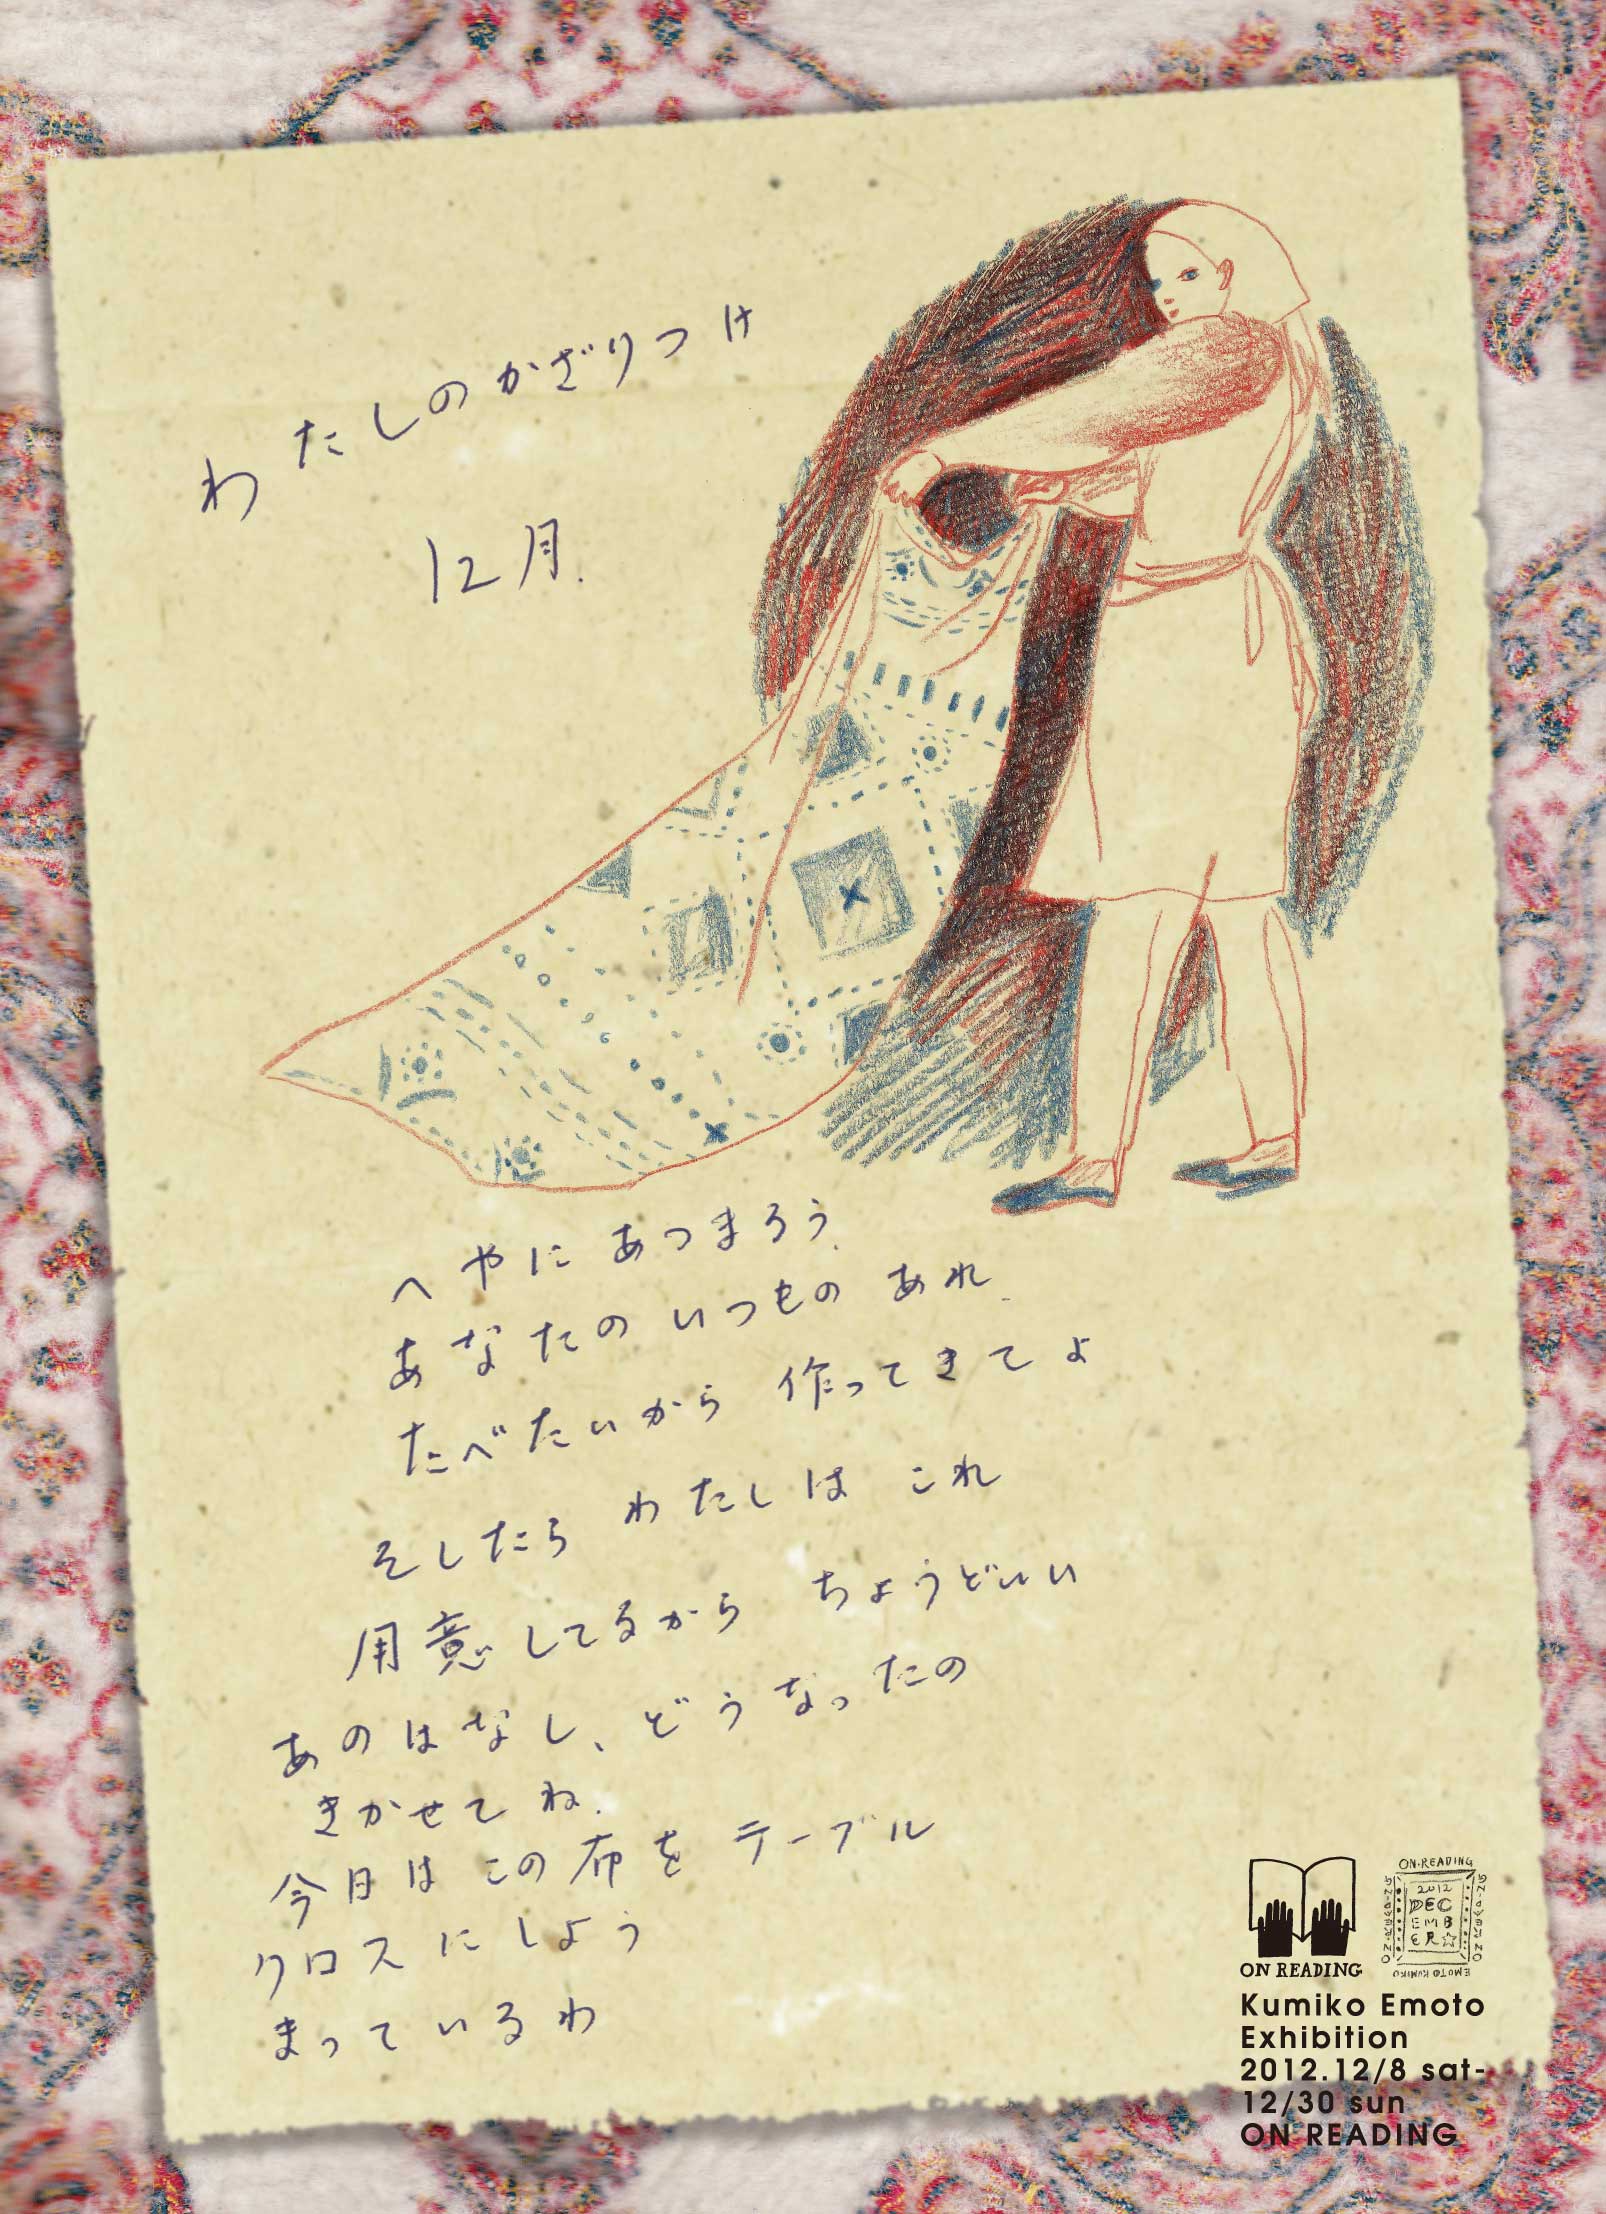 わたしのかざりつけ
12月.
へやに あつまろう.
あなたの いつもの あれ.
たべたいから 作ってきてよ
そしたら わたしは これ
用意してるから ちょうどいい
あのはなし、どうなったの
きかせてね.
今日は この布を テーブル
クロスに しよう
まっているわ
ON READING
ON・READING
2012
DEC
EMB
ER☆
EMOTO KUMIKO
Kumiko Emoto
Exhibition
2012.12/8 sat-
12/30 sun
ON READING